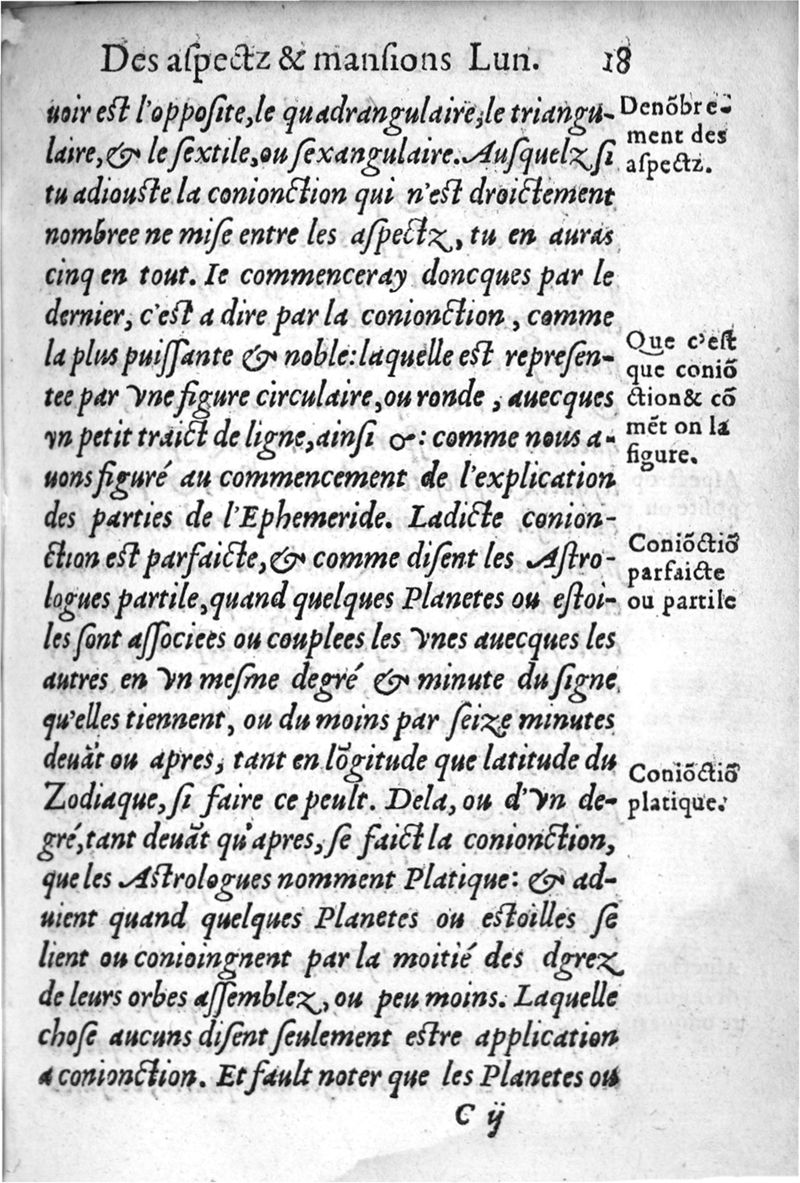 Des aſpectz & mansions Lun. 18
uoir est l'opposite, le quadrangulaire, le triangu-
laire, & le ſextile, ou ſexangulaire. Auſquelz ſi
tu adiouste la conionction qui n'est droictement
nombree ne miſe entre les aſpectz, tu en auras
cinq en tout. Ie commenceray doncques par le
dernier, c'est a dire par la conionction, comme
la plus puiſſante & noble: laquelle est repreſen-
tee par vne figure circulaire, ou ronde, auecques
vn petit traict de ligne, ainſi ☌: comme nous a-
uons figuré au commencement de l'explication
des parties de l'Ephemeride. Ladicte conion-
ction est parfaicte, & comme diſent les Astro-
logues partile, quand quelques Planetes ou estoi-
les ſont aſſociees ou couplees les vnes auecques les
autres en vn meſme degré & minute du ſigne
qu'elles tiennent, ou du moins par ſeize minutes
deuãt ou apres, tant en lõgitude que latitude du
Zodiaque, ſi faire ce peult. Dela, ou d'vn de-
gré, tant deuãt qu'apres, ſe faict la conionction,
que les Astrologues nomment Platique: & ad-
uient quand quelques Planetes ou estoilles ſe
lient ou conioingnent par la moitié des dgrez
de leurs orbes aſſemblez, ou peu moins. Laquelle
choſe aucuns diſent ſeulement estre application
a conionction. Et fault noter que les Planetes ou
C ij
Denõbre-
ment des
aſpectz.
Que c'eſt
que coniõ
ction & cõ
mẽt on la
figure.
Coniõctiõ
parfaicte
ou partile
Coniõctiõ
platique.